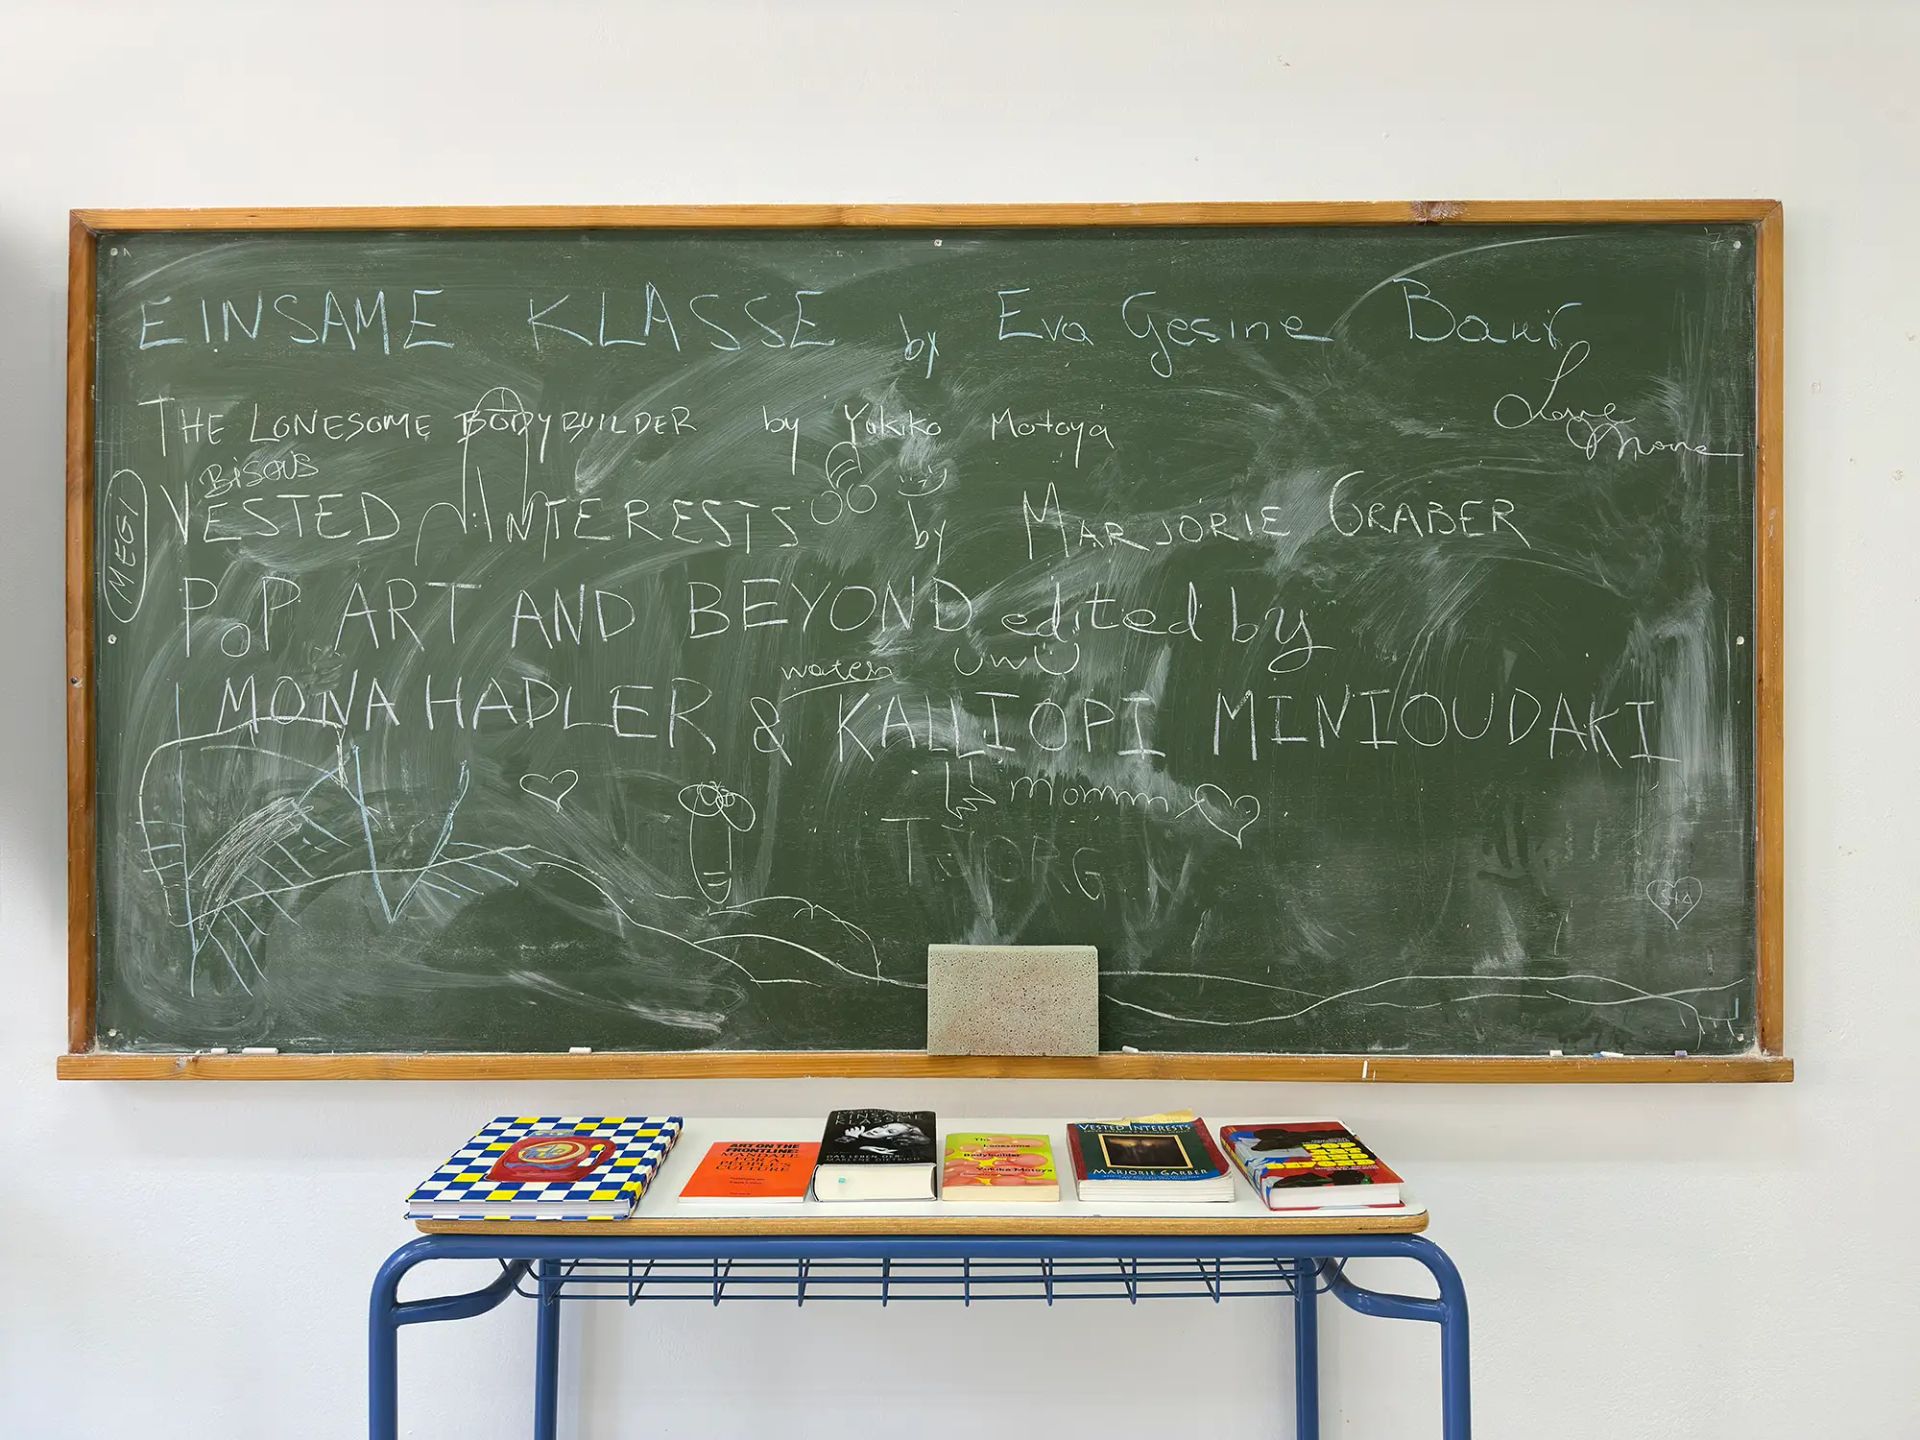 EINSAME KLASSE by Eva Gesine Baur
THE LONESOME BODYBUILDER by Yukiko Motoya
Love
Mona
BISOUS
MEGI
VESTED INTERESTS by MARJORIE GRABER
POP ART AND BEYOND edited by
water UwU
MONA HADLER & KALLIOPI MINIOUDAKI
momm
SIA
ART ON THE
FRONTLINE:
MANDATE
FOR A
PEOPLE'S
CULTURE
EINSAME
KLASSE
DAS LEBEN DER
MARLENE DIETRICH
The
Lonesome
Bodybuilder
Yukiko Motoya
VESTED INTERESTS
MARJORIE GARBER
POP